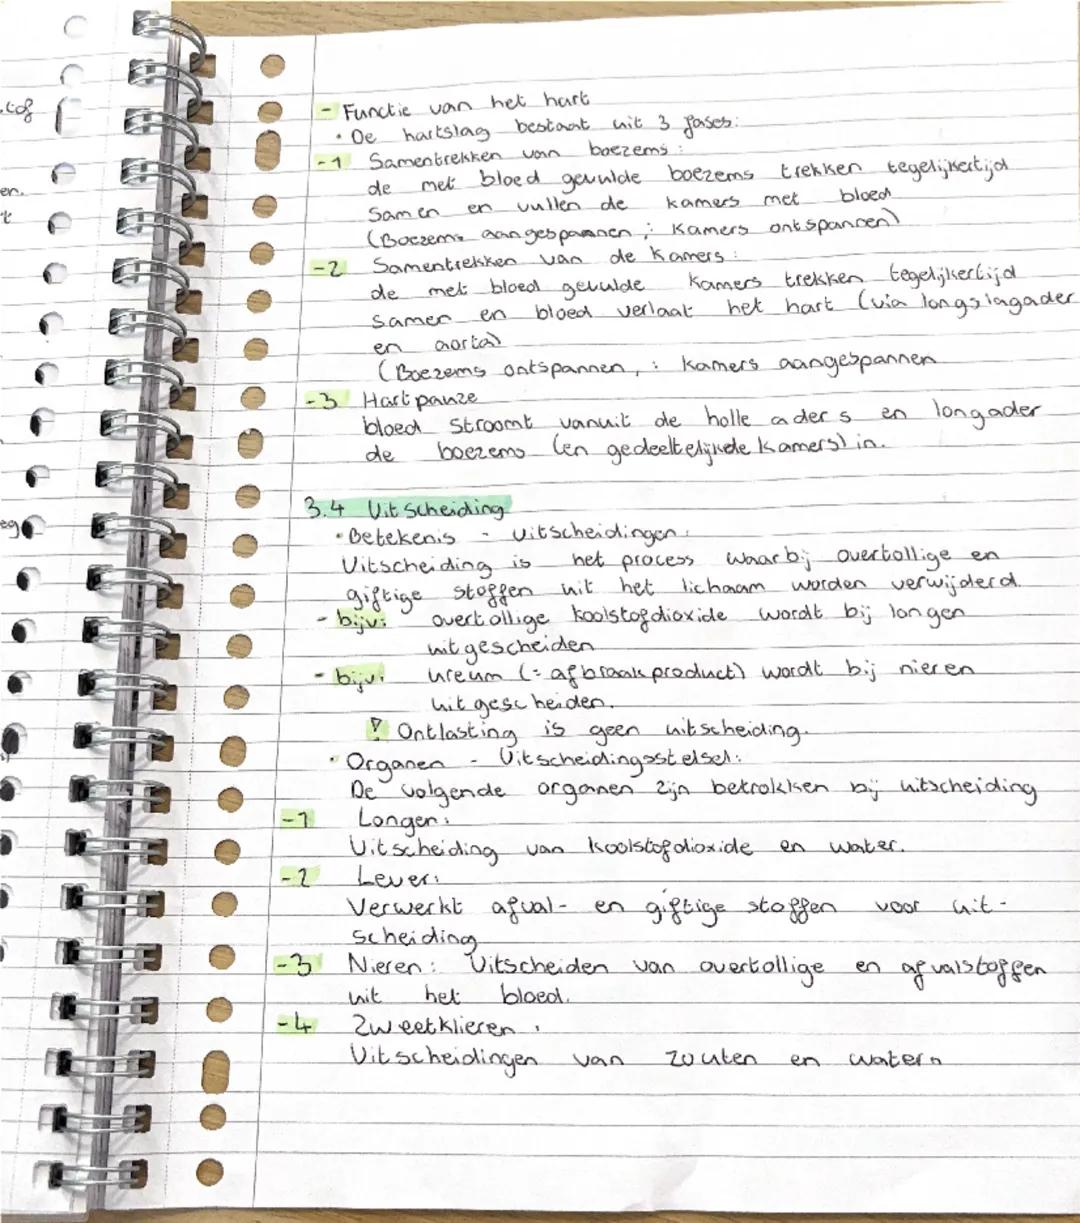 tof
en.
t
eg
- Functie van het hart
• De hartslag bestaat uit 3 fases:
-1 Samentrekken van boezems:
de met bloed gevulde boezems trekken tegelijkertijd
samen en vullen de kamers met bloed
(Boezems aangespannen ; kamers ontspannen)
-2 Samentrekken van de kamers:
de met bloed gevulde kamers trekken tegelijkertijd
samen en bloed verlaat het hart (via longslagader
en aorta)
(Boezems ontspannen, : kamers aangespannen
-3 Hartpauze
bloed stroomt vanuit de holle aders en longader
de boezems (en gedeeltelijkede kamers) in.
3.4 Uitscheiding
• Betekenis - uitscheidingen:
Uitscheiding is het process waarbij overtollige en
giftige stoffen uit het lichaam worden verwijderd.
- bijv: overtollige koolstofdioxide wordt bij longen
uitgescheiden
- bijv: ureum (= afbraakproduct) wordt bij nieren
uitgescheiden.
! Ontlasting is geen uitscheiding.
• Organen - Uitscheidingsstelsel:
De volgende organen zijn betrokken bij uitscheiding
-1 Longen:
Uitscheiding van koolstofdioxide en water.
-2 Lever:
Verwerkt afval- en giftige stoffen voor uit-
scheiding
-3 Nieren: Uitscheiden van overtollige en afvalstoffen
uit het bloed.
-4 Zweetklieren:
Uitscheidingen van zouten en water